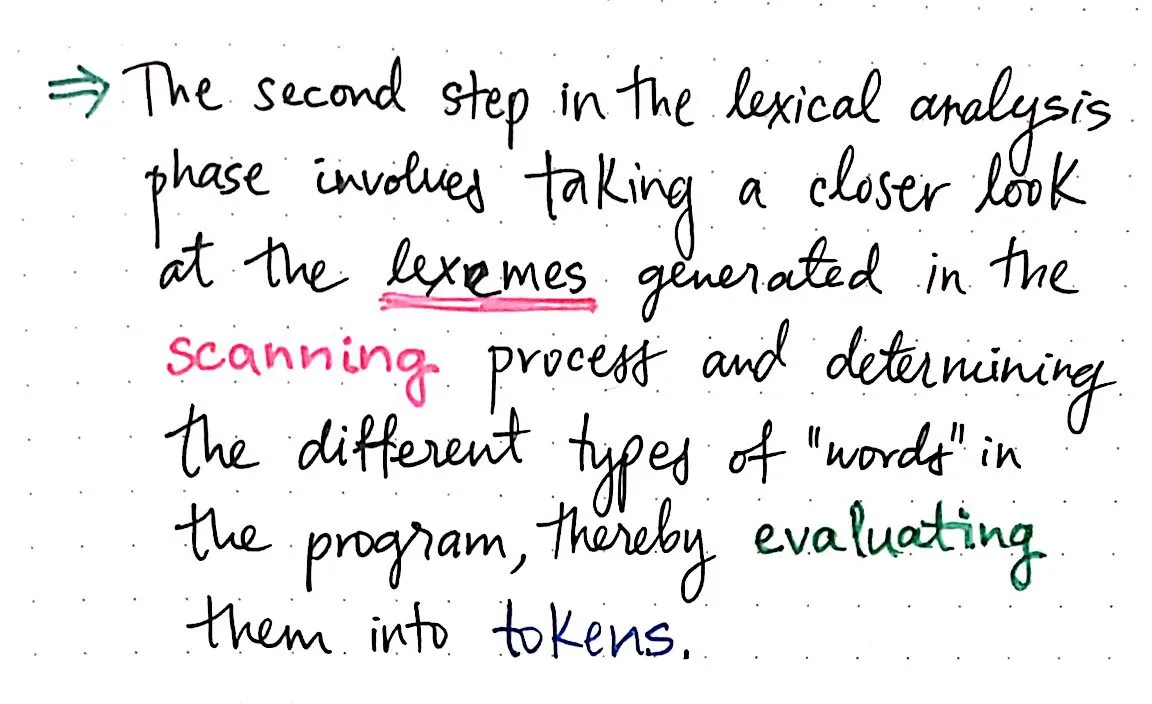 ⇒ The second step in the lexical analysis
phase involves taking a closer look
at the lexemes generated in the
scanning process and determining
the different types of "words" in
the program, thereby evaluating
them into tokens.